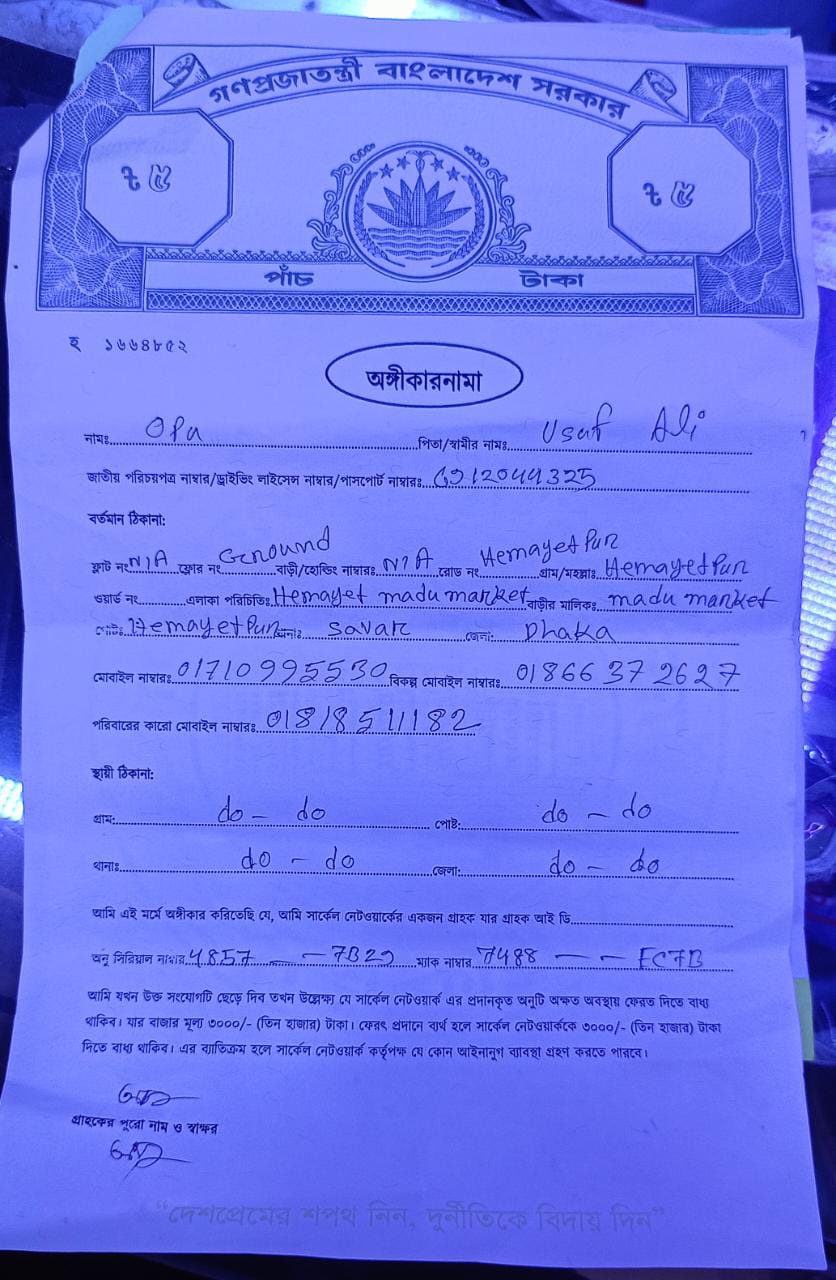 গণপ্রজাতন্ত্রী বাংলাদেশ সরকার
৳ ৫ ৳ ৫
পাঁচ টাকা
হ ১৬৬৪৮৫২
অঙ্গীকারনামা
নামঃ Opu পিতা/স্বামীর নামঃ Usuf Ali
জাতীয় পরিচয়পত্র নাম্বার/ড্রাইভিং লাইসেন্স নাম্বার/পাসপোর্ট নাম্বারঃ 6912044325
বর্তমান ঠিকানা:
ফ্লাট নং N/A ফ্লোর নং Ground বাড়ী/হোল্ডিং নাম্বারঃ N/A রোড নং Hemayetpur গ্রাম/মহল্লাঃ Hemayetpur
ওয়ার্ড নং এলাকা পরিচিতিঃ Hemayet madu market বাড়ীর মালিকঃ madu market
পোষ্টঃ Hemayetpur থানাঃ savar জেলা: Dhaka
মোবাইল নাম্বারঃ 01710995530 বিকল্প মোবাইল নাম্বারঃ 01866 37 2627
পরিবারের কারো মোবাইল নাম্বারঃ 01818511182
স্থায়ী ঠিকানা:
গ্রাম: do - do পোষ্ট: do - do
থানাঃ do - do জেলা: do - do
আমি এই মর্মে অঙ্গীকার করিতেছি যে, আমি সার্কেল নেটওয়ার্কের একজন গ্রাহক যার গ্রাহক আই ডি
অনু সিরিয়াল নাম্বার 4857 - - 7B29 ম্যাক নাম্বার 7488 - - EC7B
আমি যখন উক্ত সংযোগটি ছেড়ে দিব তখন উল্লেক্ষ্য যে সার্কেল নেটওয়ার্ক এর প্রদানকৃত অনুটি অক্ষত অবস্থায় ফেরত দিতে বাধ্য
থাকিব। যার বাজার মূল্য ৩০০০/- (তিন হাজার) টাকা। ফেরৎ প্রদানে ব্যর্থ হলে সার্কেল নেটওয়ার্ককে ৩০০০/- (তিন হাজার) টাকা
দিতে বাধ্য থাকিব। এর ব্যাতিক্রম হলে সার্কেল নেটওয়ার্ক কর্তৃপক্ষ যে কোন আইনানুগ ব্যাবস্থা গ্রহণ করতে পারবে।
গ্রাহকের পুরো নাম ও স্বাক্ষর
“দেশপ্রেমের শপথ নিন, দুর্নীতিকে বিদায় দিন”